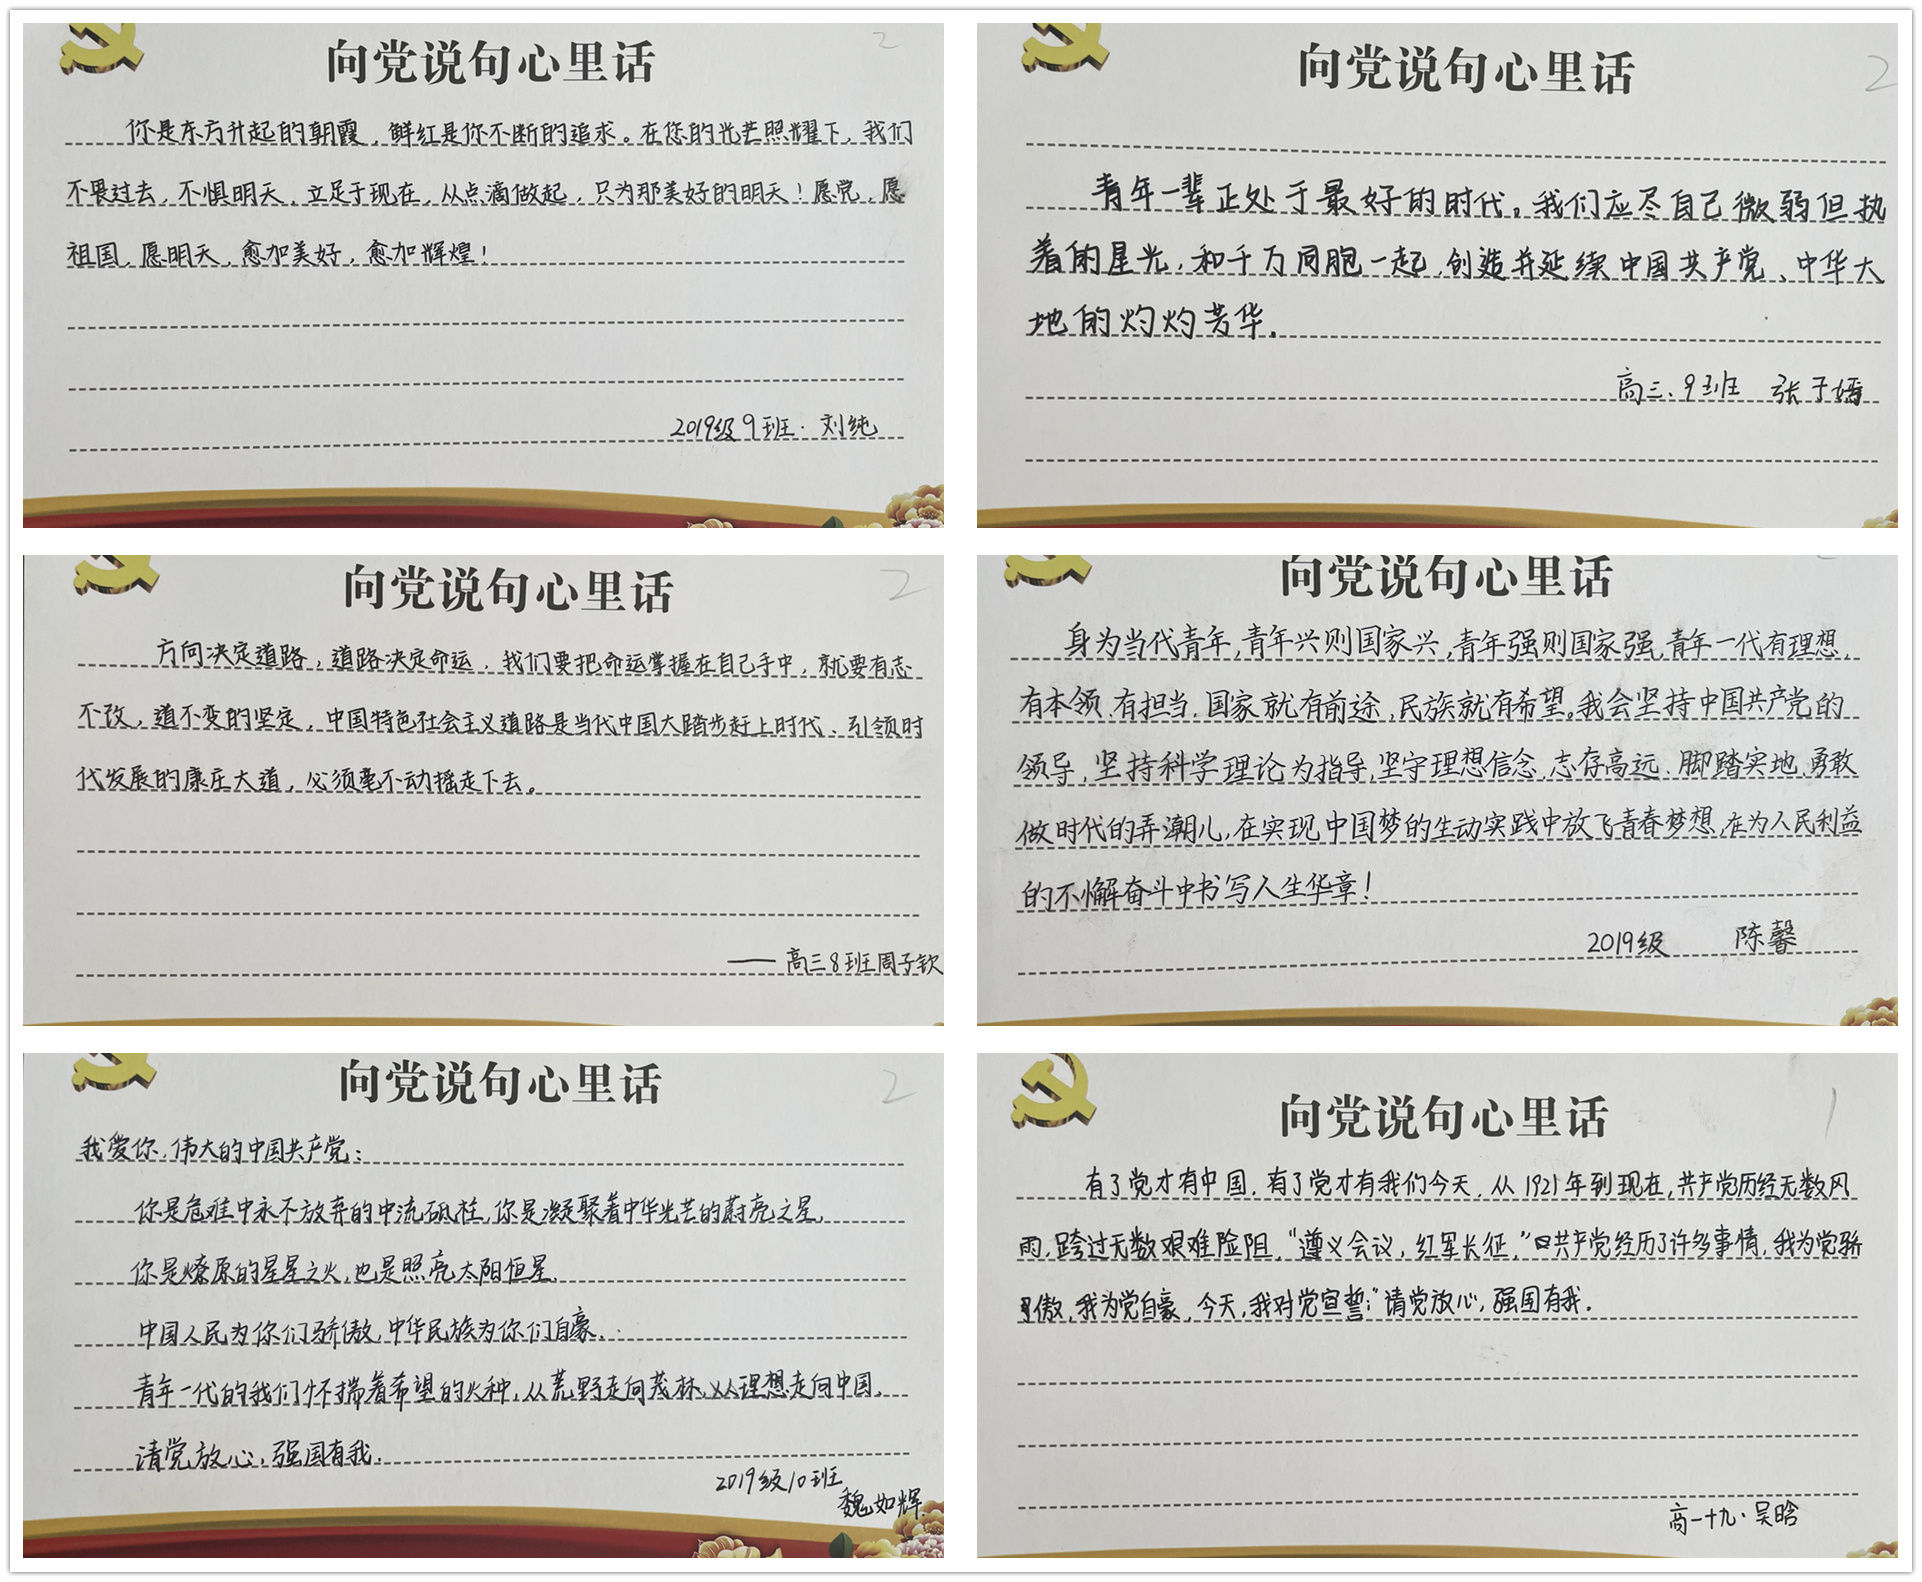 向党说句心里话
2
你是东方升起的朝霞，鲜红是你不断的追求。在您的光芒照耀下，我们
不畏过去，不惧明天，立足于现在，从点滴做起，只为那美好的明天！愿党，愿
祖国，愿明天，愈加美好，愈加辉煌！
2019级9班·刘纯
向党说句心里话
2
青年一辈正处于最好的时代。我们应尽自己微弱但执
着的星光，和千万同胞一起，创造并延续中国共产党、中华大
地的灼灼芳华。
高三.9班 张予嫣
向党说句心里话
2
方向决定道路，道路决定命运，我们要把命运掌握在自己手中，就要有志
不改，道不变的坚定，中国特色社会主义道路是当代中国大踏步赶上时代、引领时
代发展的康庄大道，必须毫不动摇走下去。
——高三8班周子钦
向党说句心里话
身为当代青年，青年兴则国家兴，青年强则国家强，青年一代有理想，
有本领，有担当，国家就有前途，民族就有希望。我会坚持中国共产党的
领导，坚持科学理论为指导，坚守理想信念，志存高远、脚踏实地，勇敢
做时代的弄潮儿，在实现中国梦的生动实践中放飞青春梦想，在为人民利益
的不懈奋斗中书写人生华章！
2019级 陈馨
向党说句心里话
2
我爱你，伟大的中国共产党：
你是危难中永不放弃的中流砥柱，你是凝聚着中华光芒的蔚亮之星，
你是燎原的星星之火，也是照亮太阳恒星，
中国人民为你们骄傲，中华民族为你们自豪，
青年一代的我们怀揣着希望的火种，从荒野走向茂林，从理想走向中国，
请党放心，强国有我。
2019级10班
魏如辉
向党说句心里话
1
有了党才有中国，有了党才有我们今天，从1921年到现在，共产党历经无数风
雨，跨过无数艰难险阻，“遵义会议，红军长征，”共产党经历了许多事情，我为党骄
傲，我为党自豪，今天，我对党宣誓：“请党放心，强国有我.
高一十九·吴晗